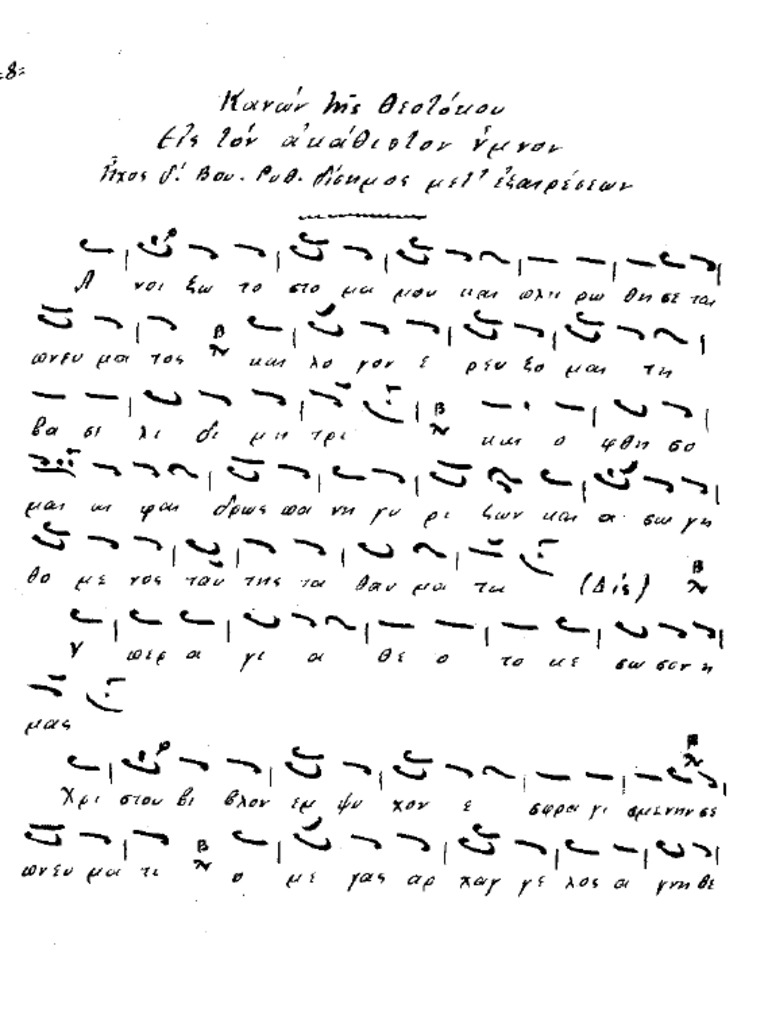 -8-
Κανών τῆς Θεοτόκου
Εἰς τόν ἀκάθιστον ὕμνον
Ἦχος δ΄. Βου. Ρυθ. δίσημος μετ' ἐξαιρέσεων
Α νοι ξω το στο μα μου και πλη ρω θη σε ται
πνευ μα τος Β και λο γον ε ρευ ξο μαι τη
βα σι λι δι μη τρι Β και ο φθη σο
μαι φαι δρως πα νη γυ ρι ζων και α σω γη
θο με νος ταυ της τα θαυ μα τα (Δίς) Β
Υ περ α γι α θε ο το κε σω σον η
μας
Β
Χρι στου βι βλον εμ ψυ χον ε σφρα γι σμενην σε
πνευ μα τι Β ο με γας αρ χαγ γε λος α γνη θε